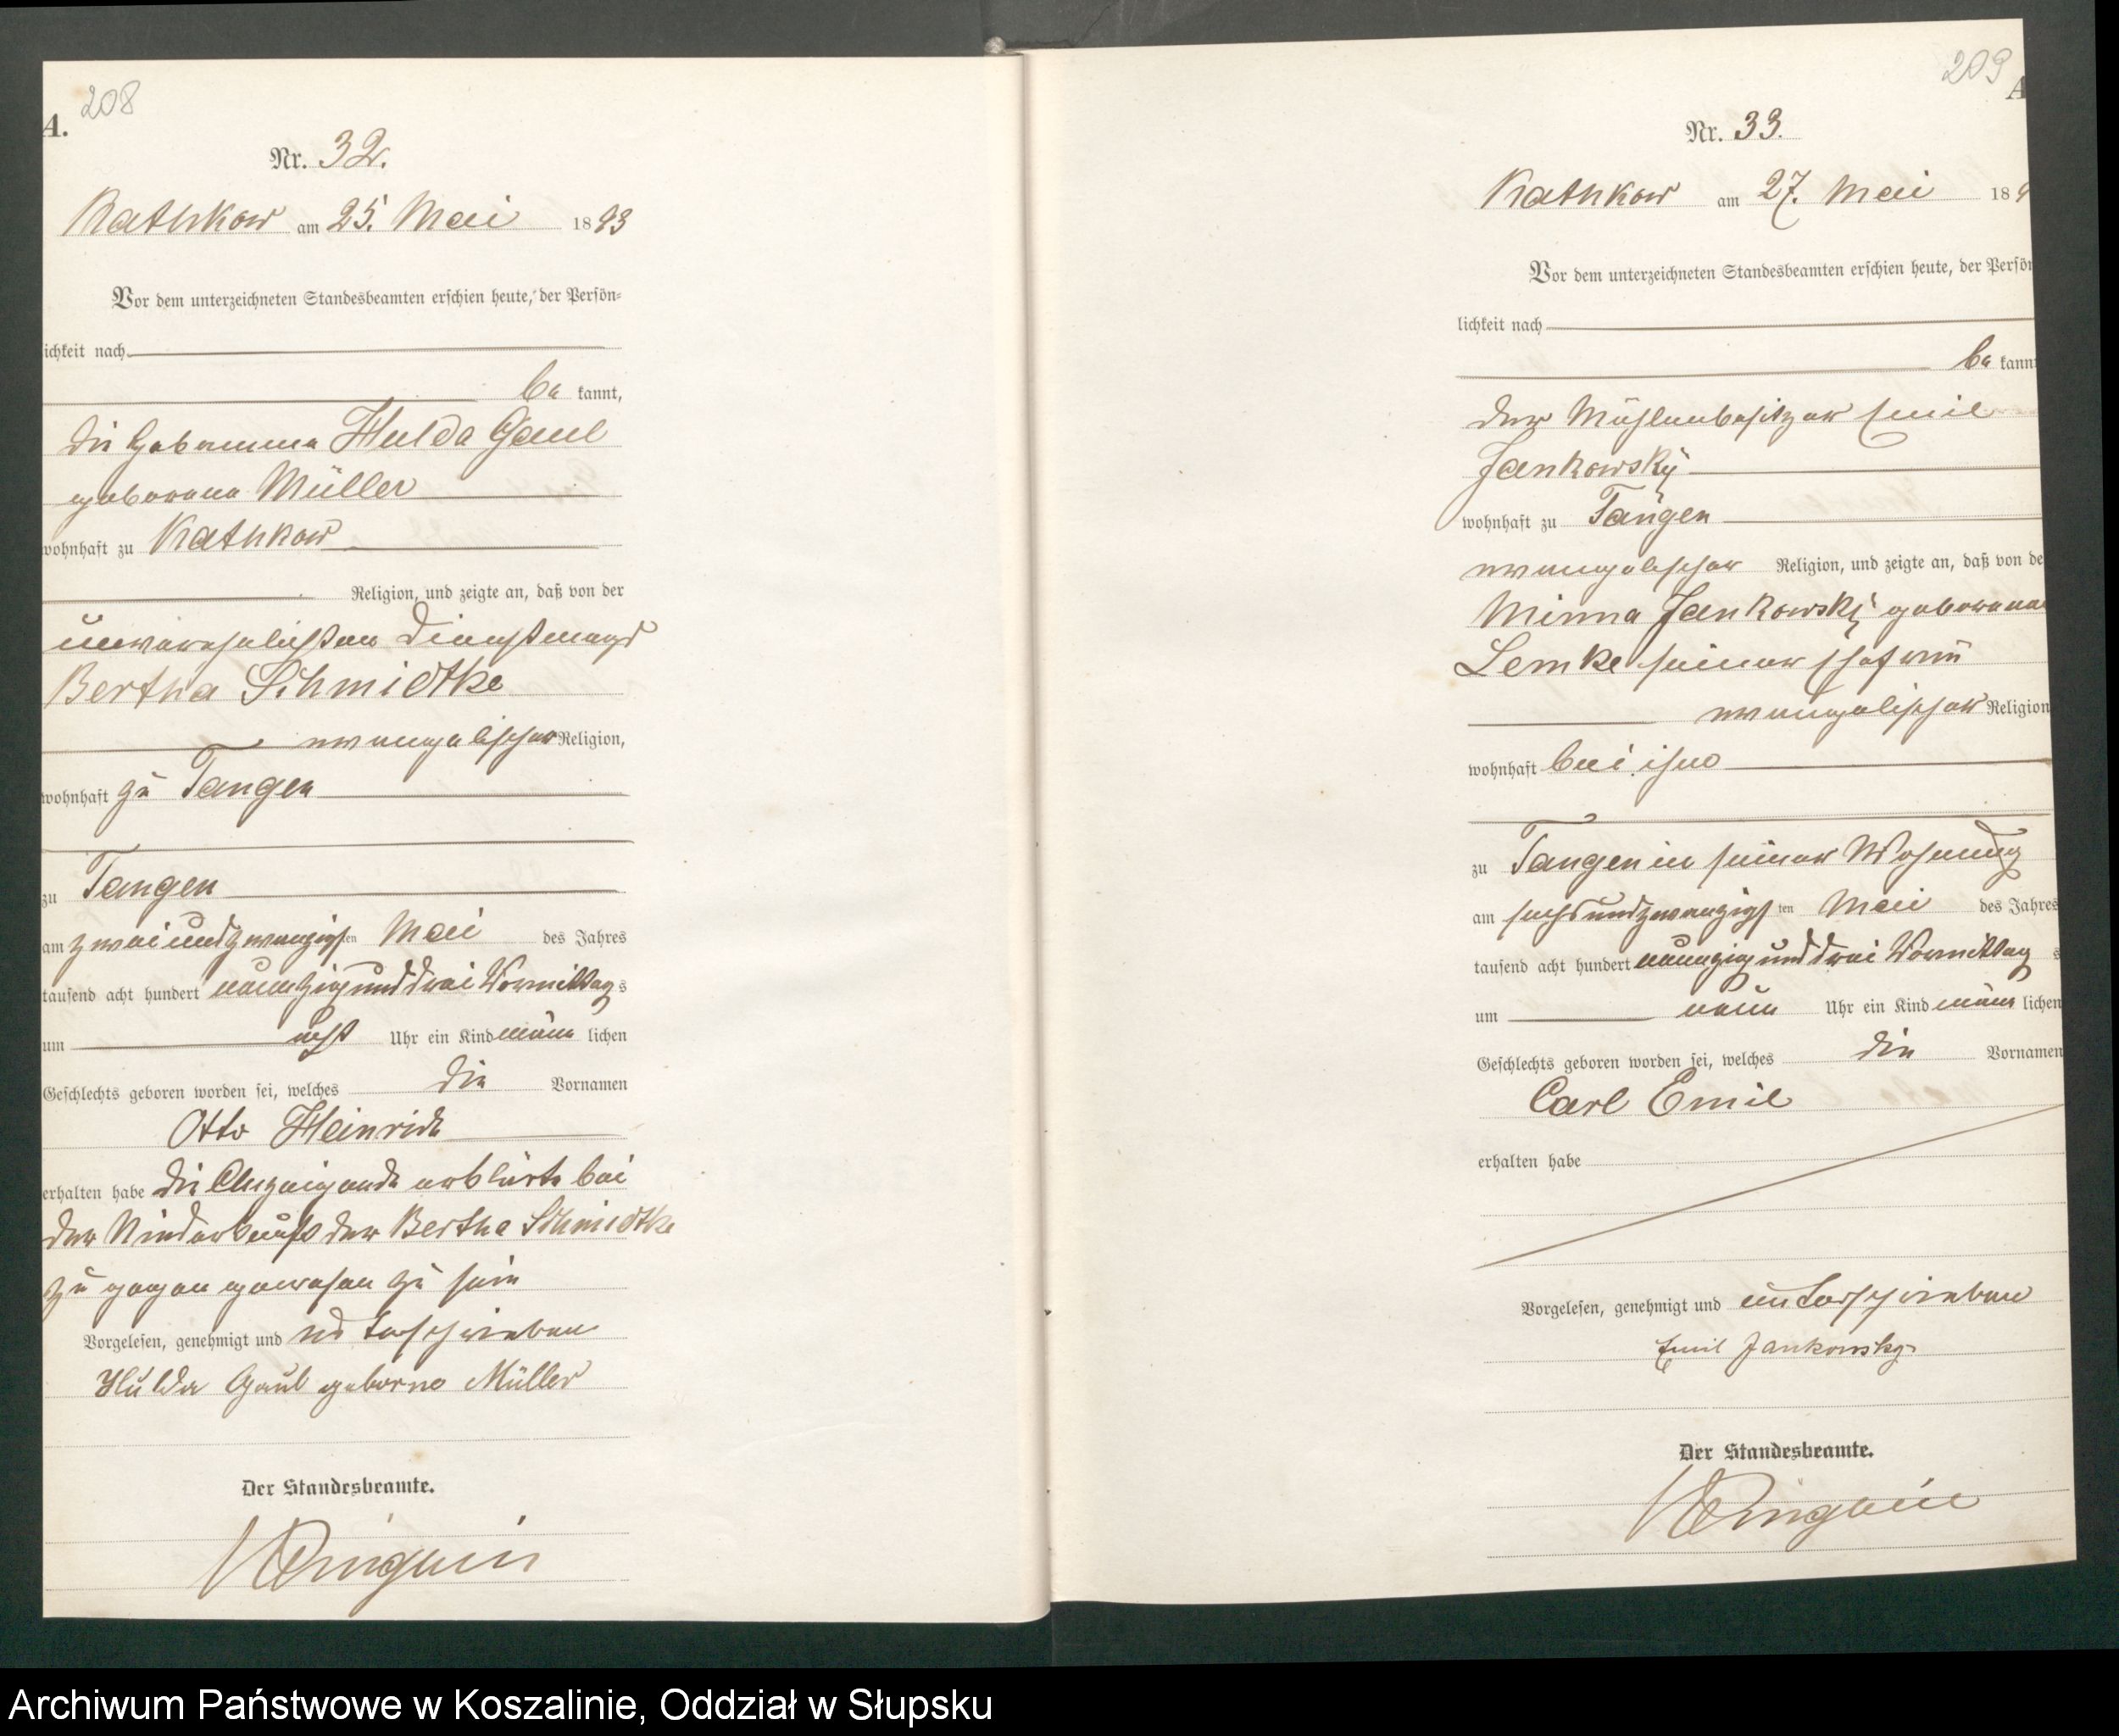 208
A.
Nr. 32.
Kathkow am 25. Mai 1893
Vor dem unterzeichneten Standesbeamten erschien heute, der Persön-
ichkeit nach
be kannt,
die Hebamme Hulda Gaul
geborene Müller
wohnhaft zu Kathkow
Religion, und zeigte an, daß von der
unverehelichten Dienstmagd
Bertha Schmidtke
evangelischer Religion,
wohnhaft zu Tangen
zu Tangen
am zweiundzwanzigsten Mai des Jahres
tausend acht hundert neunzig und drei Vormittags
um acht Uhr ein Kind männlichen
Geschlechts geboren worden sei, welches die Vornamen
Otto Heinrich
erhalten habe die Anzeigende erklärte bei
der Niederkunft der Bertha Schmidtke
zugegen gewesen zu sein
Vorgelesen, genehmigt und unterschrieben
Hulda Gaul geborne Müller
Der Standesbeamte.
209
A
Nr. 33.
Kathkow am 27. Mai 189
Vor dem unterzeichneten Standesbeamten erschien heute, der Persön
lichkeit nach
be kannt
der Mühlenbesitzer Emil
Jankowsky
wohnhaft zu Tangen
evangelischer Religion, und zeigte an, daß von de
Minna Jankowsky geborene
Lemke seiner Ehefrau
evangelischer Religion
wohnhaft bei ihm
zu Tangen in seiner Wohnung
am sechsundzwanzigsten Mai des Jahres
tausend acht hundert neunzig und drei Vormittags
um neun Uhr ein Kind männlichen
Geschlechts geboren worden sei, welches die Vornamen
Carl Emil
erhalten habe
Vorgelesen, genehmigt und unterschrieben
Emil Jankowsky
Der Standesbeamte.
Archiwum Państwowe w Koszalinie, Oddział w Słupsku